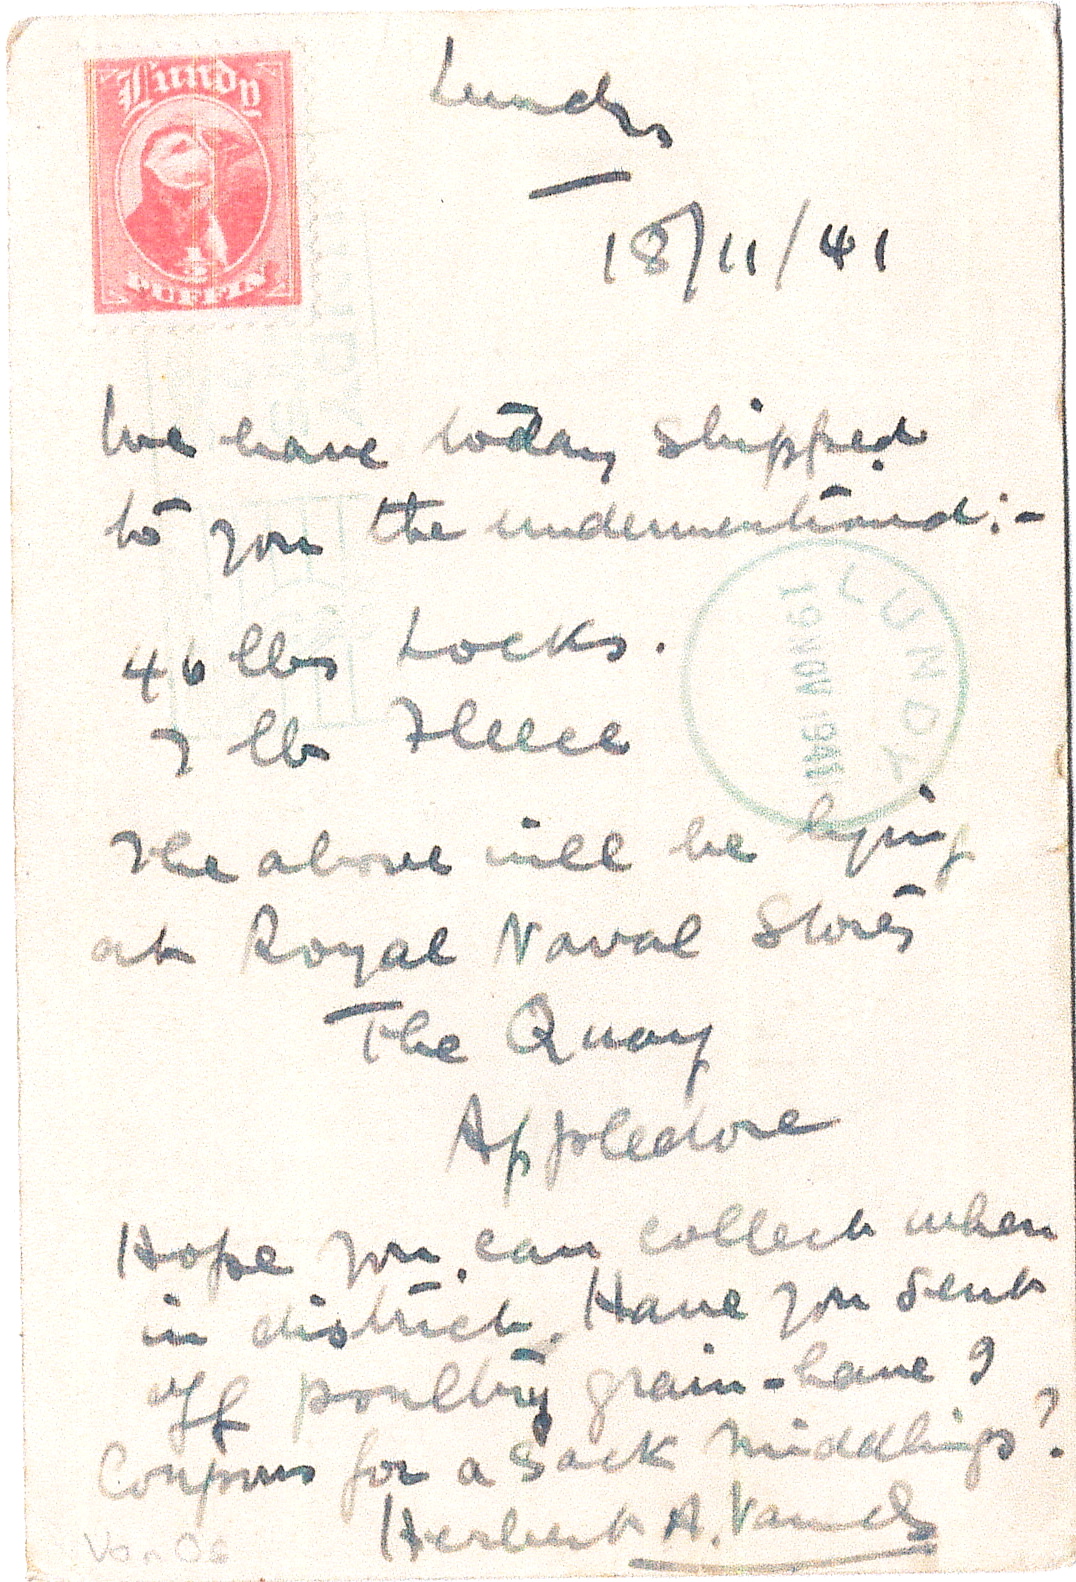 Lundy
½
PUFFIN
Lundy
18/11/41
We have today shipped
to you the undermentioned:-
LUNDY
19 NOV 1941
46 lbs Locks.
7 lbs Fleece
The above will be lying
at Royal Naval Stores
The Quay
Appledore
Hope you can collect when
in district. Have you sent
off poultry grain - have I
Coupons for a Sack Middlings?
Herbert A.